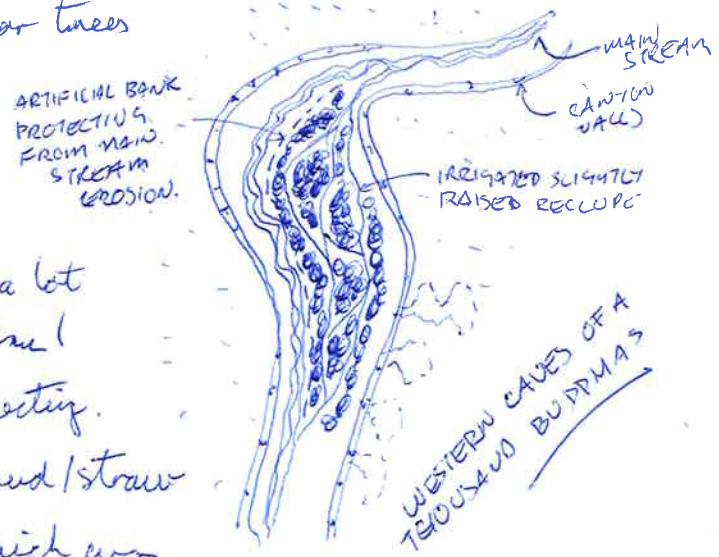 trees
ARTIFICIAL BANK
PROTECTING
FROM MAIN
STREAM
EROSION.
MAIN
STREAM
CANYON
WALL)
IRRIGATED SLIGHTLY
RAISED
a lot
/straw
WESTERN CAVES OF A
THOUSAND BUDDHAS